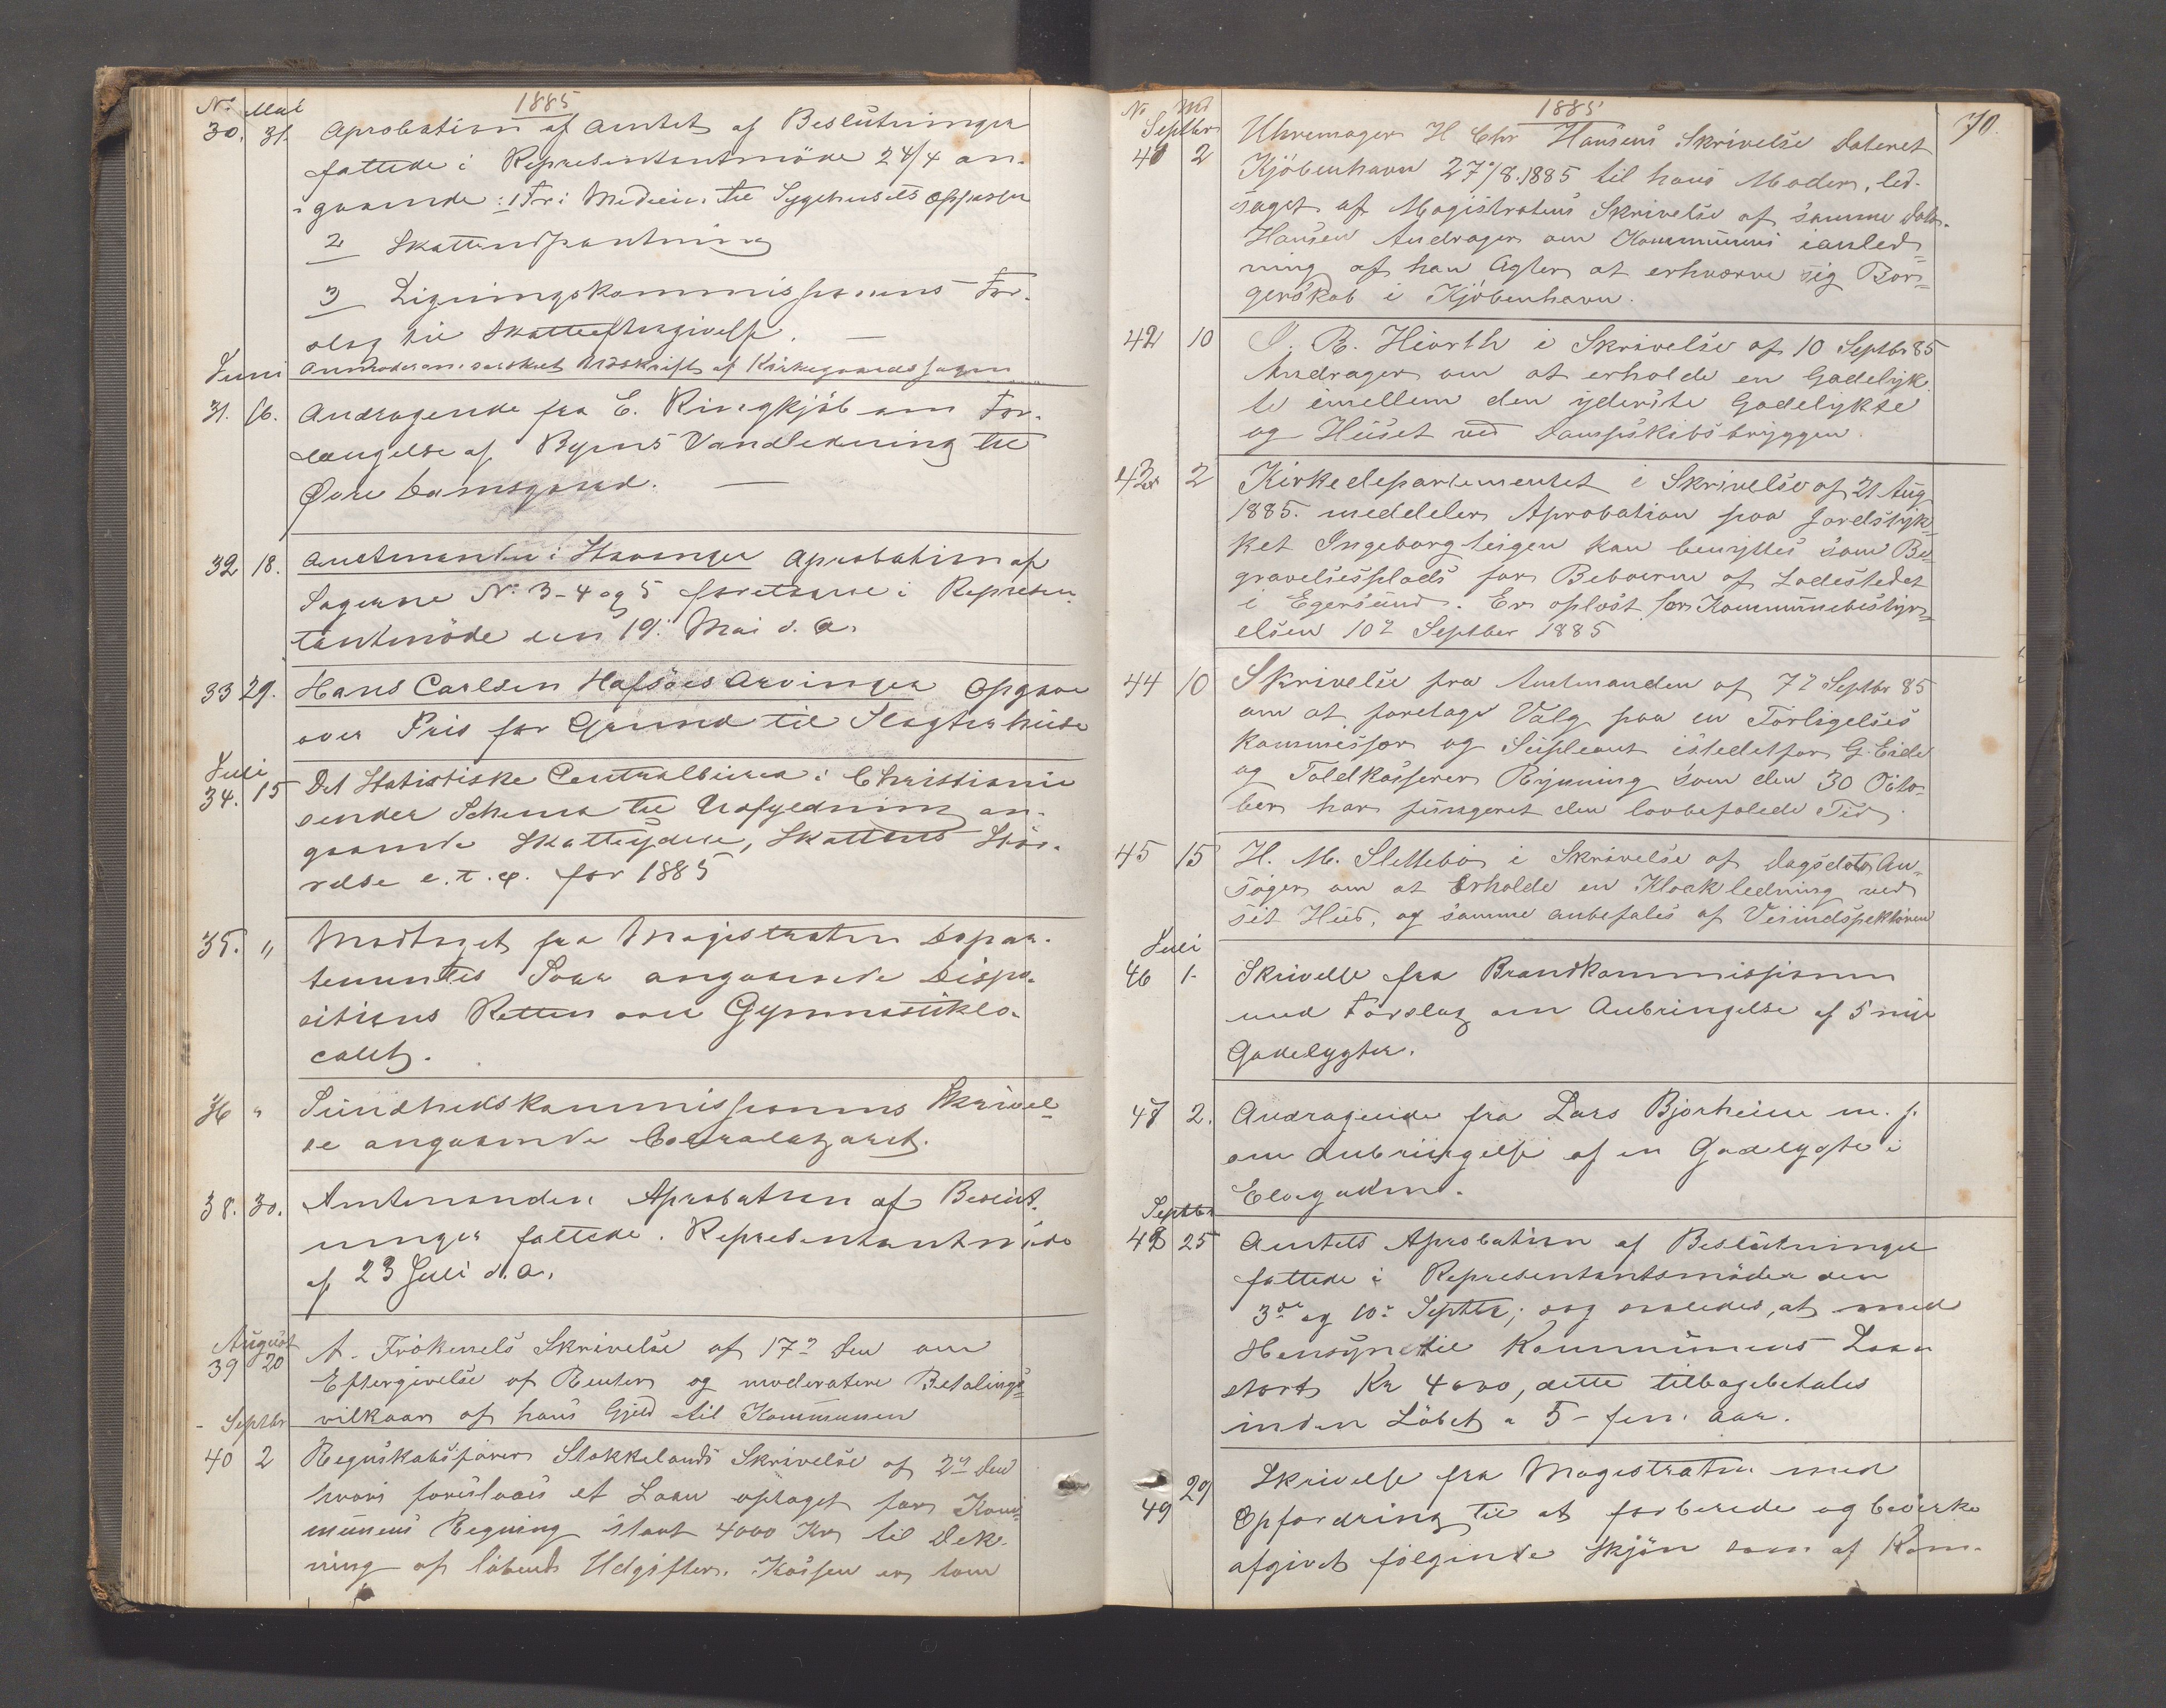 1885
No Mai
30. 31. Aprobation af Amtet af Beslutninger
fattede i Representantmöde 24/4 an-
gaaende: 1 Fri Medicin til Sygehusets
2 Skatteudpantning
3 Ligningskommissionens For-
slag til Skatteeftergivelse. —
Udskrift af Kirkegaardssagen
Juni
31. 16. Andragende fra E. Ringkjöb om For-
længelse af Byens Vandledning til
Øvre Damsgaard. —
32 18. Amtmanden i Stavanger Aprobation af
Sagerne No 3-4 og 5 foretagne i Represen-
tantmöde den 19. Mai d. A.
33 29. Hans Carlsen Hafsöes Arvinger Opgave
over Pris for Grund til Slagterhuse
Juli
34. 15 Det Statistiske Centralbureau i Christiania
sender Schema til Udfyldning an-
gaaende Skatteydere, Skattens Stör-
relse e.t.c. for 1885
35. " Modtaget fra Magistraten Depar-
tementes Svar angaaende Dispo-
sitions Retten over Gymnastiklo-
calet.
36 " Sundhedskommissionens Skrivel-
se angaaende Coleralazaret.
38. 30. Amtmanden Aprobation af Beslut-
ninger fattede i Representantmöde
af 23 Juli d. A.
August
39 20 A. Frökenels Skrivelse af 17de den om
Eftergivelse af Renter og moderatere Betalings-
vilkaar af hans Gjeld til Kommunen
Septbr
40 2 Regnskabsförer Stokkelands Skrivelse af 2den den
hvori foreslaaes et Laan optaget for Kom-
munens Regning stort 4000 Kr til Dek-
ning af löbende Udgifter. Kassen er tom
1885
70.
No Md
Septber
41 2 Uhrmager H Chr Hansens Skrivelse dateret
Kjöbenhavn 27/8.1885 til hans Moder, led-
saget af Magistratens Skrivelse af samme Dato.
Hansen Andrager om Kommunens i anled-
ning af han Agter at erhverve sig Bor-
gerskab i Kjöbenhavn.
42 10 R. Hiorth i Skrivelse af 10 Septbr 85
Andrager om at erholde en Gadelyk-
te imellem den yderste Gadelykte
og Huset ved Dampskibsbryggen.
43 2 Kirkedepartementet i Skrivelse af 21 Aug
1885. meddeler Aprobation paa Jordstyk-
ket Ingeborgteigen kan benyttes som Be-
gravelsesplads for Beboerne af Ladestedet
i Egersund. Er oplæst for Kommunebestyr-
elsen 10de Septber 1885
44 10 Skrivelse fra Amtmanden af 7de Septbr 85
om at foretage Valg paa en Forligelses
Kommissær og Supleant istedetfor G. Eide
og Toldkasserer Rynning som den 30 Octo-
ber har fungeret den lovbefalede Tid.
45 15 H. M. Slettebö i Skrivelse af Dagsdato An-
söger om at Erholde en Kloakledning ved
sit Hus, og samme anbefales af Veiindspektören
Juli
46 1. Skrivelse fra Brandkommissionen
med Forslag om Anbringelse af 5 nye
Gadelygter.
47 2. Andragende fra Lars Bjorheim m. fl.
om Anbringelse af en Gadelygte i
Elvegaden.
Septbr
48 25 Amtets Aprobation af Beslutninger
fattede i Representantsmöder den
3de og 10de Septbr; dog saaledes, at med
Hensyn til Kommunens Laan
stort Kr 4000, dette tilbagebetales
inden Löbet a 5 - fem Aar.
49 29 Skrivelse fra Magistraten med
Opfordring til at forberede og bevirke
afgivet fölgende Skjön som af Kom-